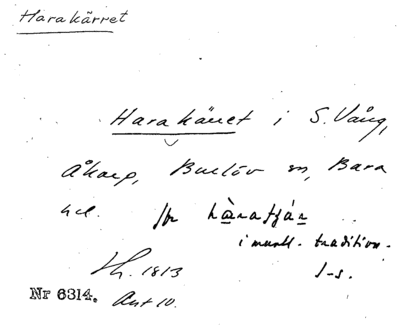 Harakärret
Harakärret i S. Vång,
Åkarp, Burlöv sn, Bara
hd. fr hàrafjár ..
i muntl. tradition.
Lh. 1813 l-s.
Nr 6314. Ant 10.